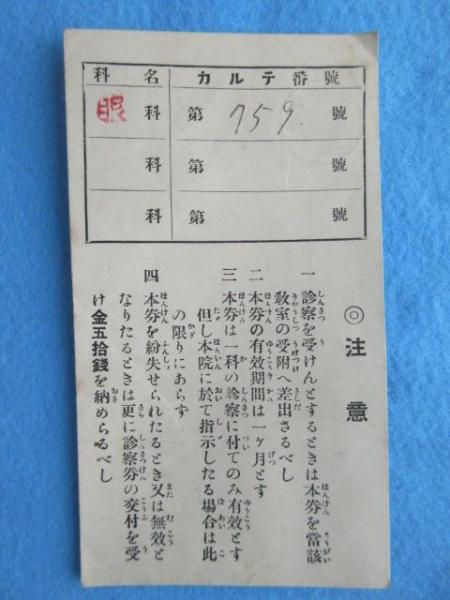 科名 カルテ番號
眼科 第759.號
科 第 號
科 第 號
◎注意
一 診察を受けんとするときは本券を當該
教室の受附へ差出さるべし
二 本券の有效期間は一ヶ月とす
三 本券は一科の診察に付てのみ有效とす
但し本院に於て指示したる場合は此
の限りにあらず
四 本券を紛失せられたるとき又は無效と
なりたるときは更に診察券の交付を受
け金五拾錢を納めらるべし